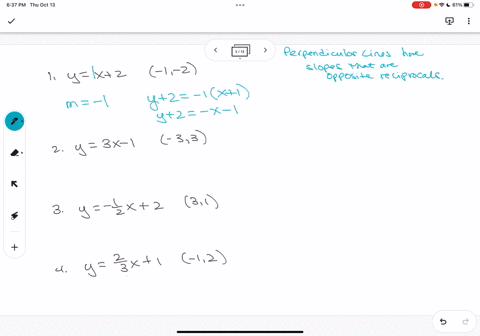 6:37 PM Thu Oct 13
61%
Perpendicular lines have
slopes that are
opposite reciprocals.
1. y = 1x + 2 (-1, -2)
m = -1 y + 2 = -1(x + 1)
y + 2 = -x - 1
2. y = 3x - 1 (-3, 3)
3. y = -1/2 x + 2 (3, 1)
4. y = 2/3 x + 1 (-1, 2)